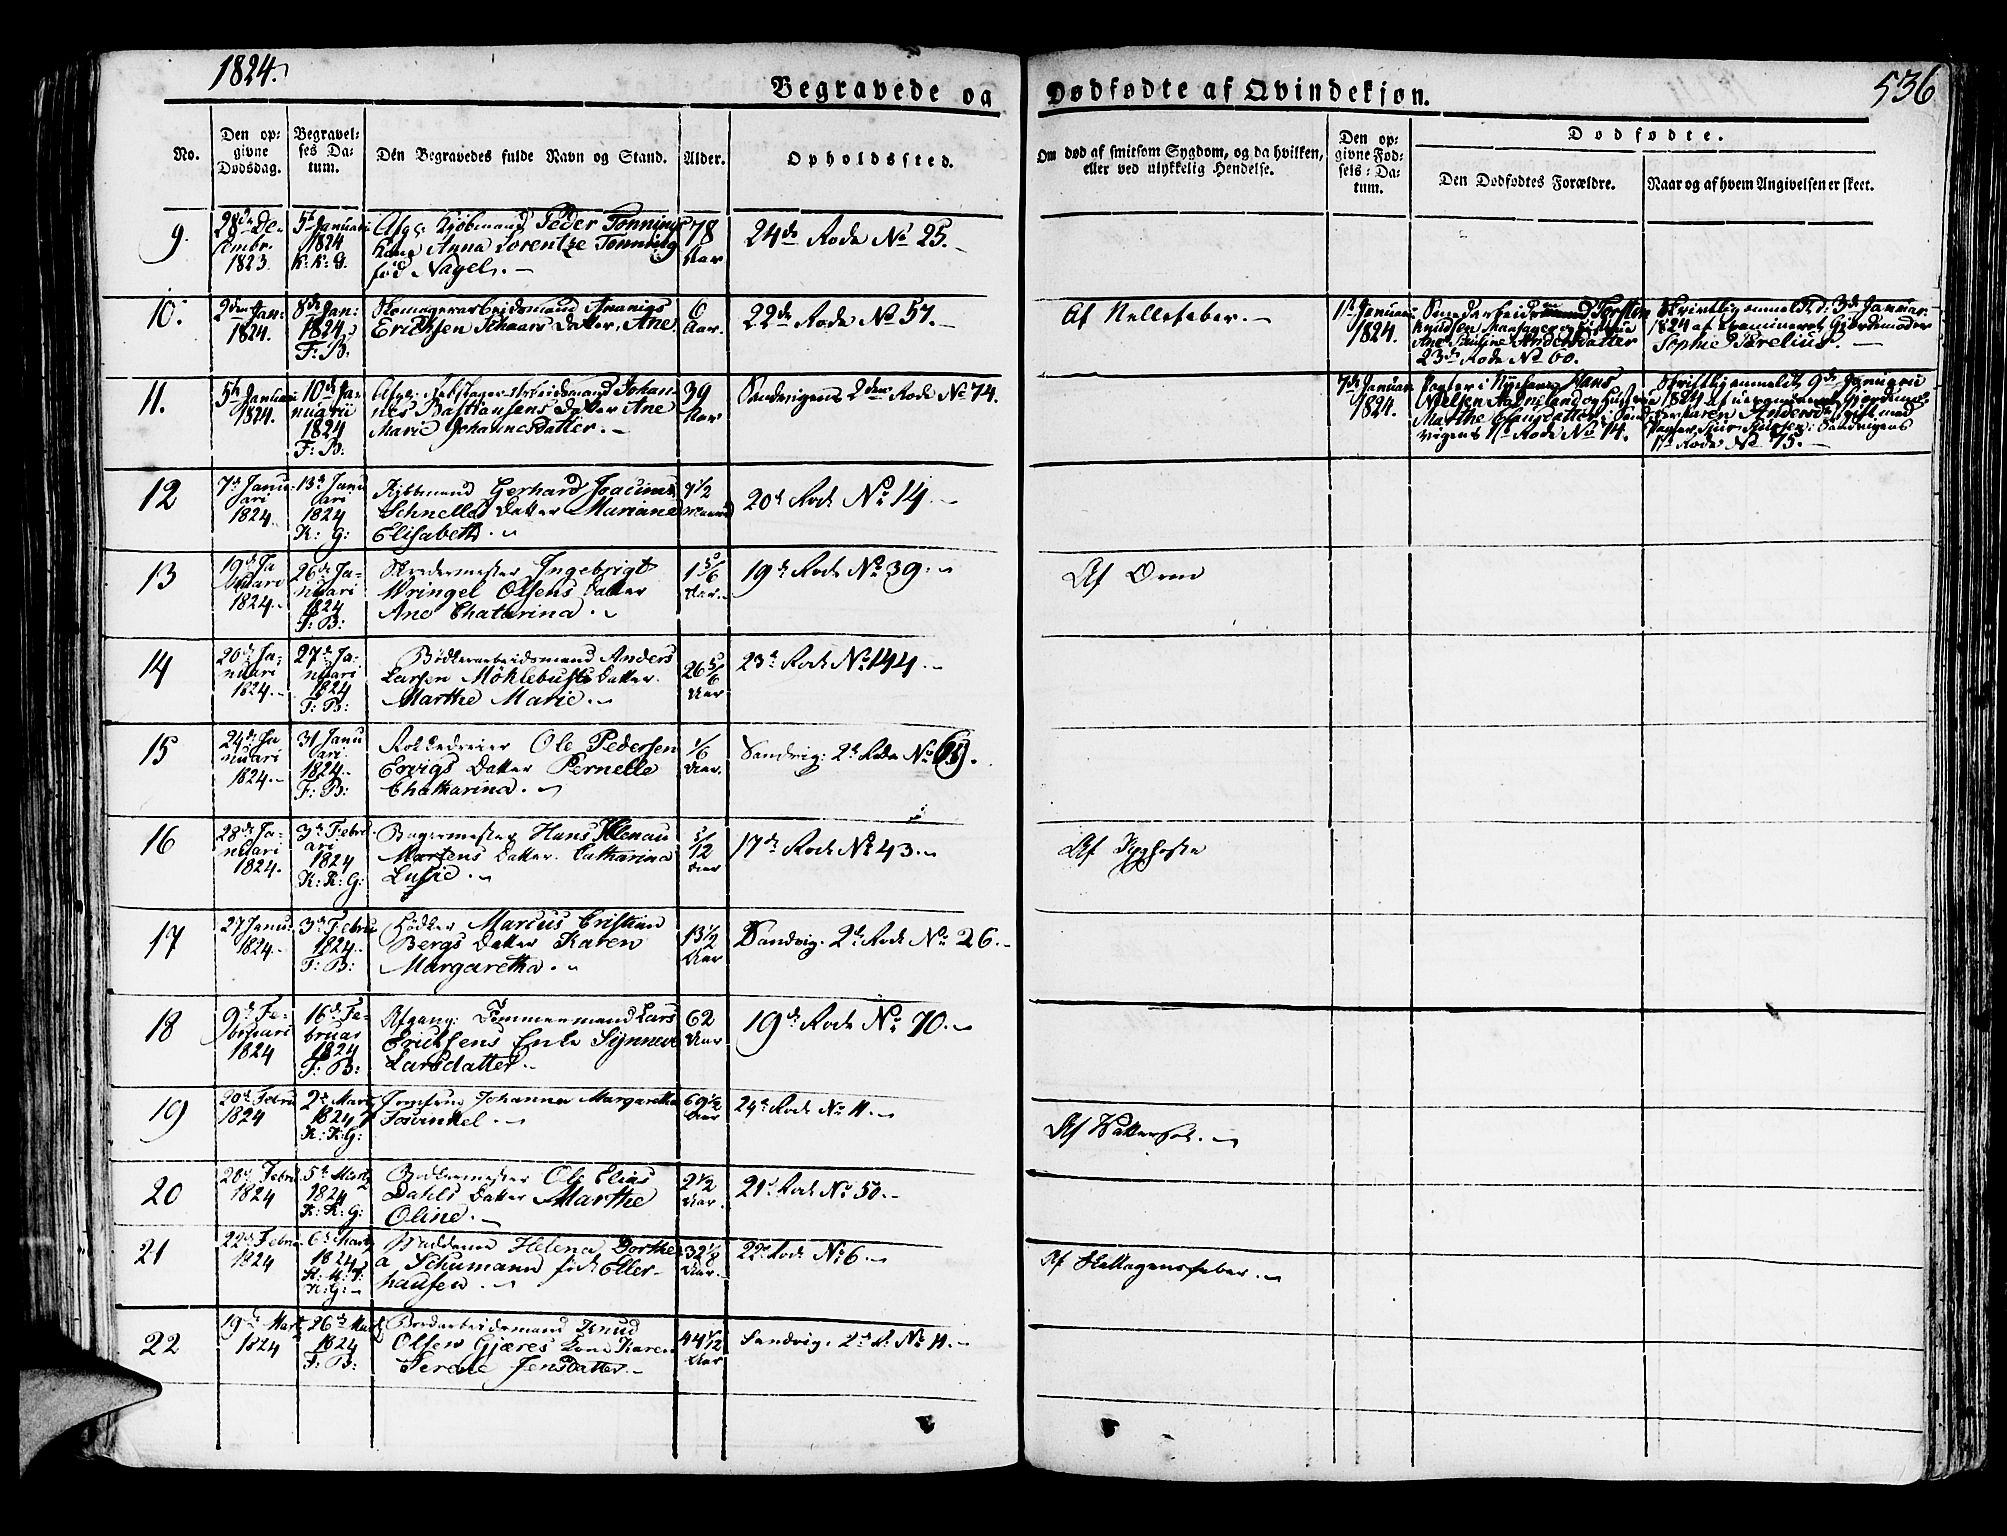 1824.
536
Begravede og Dødfødte af Qvindekjøn.
No.
Den opgivne Dødsdag.
Begravelses Datum.
Den Begravedes fulde Navn og Stand.
Alder.
Opholdssted.
Om død af smitsom Sygdom, og da hvilken, eller ved ulykkelig Hendelse.
Den opgivne Fødsels-Datum.
Dødfødte.
Den Dødfødtes Forældre.
Naar og af hvem Angivelsen er skeet.
9.
28de December 1823.
5te Januari 1824 K: K: G.
Afg: Kjøbmand Peder Tønnings
Kone Anna Lorentze Tønning
fød Nagel.
78 Aar
24de Rode No 25.
10.
2den Jan: 1824.
8de Jan: 1824 F: B:
Skomagerarbeidsmand Ananias
Erichsen Schaars Datter, Ane
6 Aar.
22de Rode No 57.
Af Nellefeber.
1te Januari 1824.
Torsten
Knudsen
Ane Pauline Andersdatter
23de Rode No 60.
Skriftlig anmeldt d: 3de Januar
1824 af examineret Gjordemoder
Sophie Parelius.
11.
5te Januari 1824.
10de Januarii 1824 F: B:
Johan-
nes Bastiansens Datter Ane
Marie Johannesdatter.
39 Aar
Sandvigens 2den Rode No 74.
7de Januari 1824.
Hans
Nielsen
Marthe i Sand-
vigens 1te Rode No 14.
Skriftlig anmeldt 9de Januarii
1824 af
Karen Anders gift med
Sandvigens
1te Rode No 75.
12
7de Januari 1824.
13de Januari 1824 K: G:
Kjøbmand Gerhard Joacims
Schnelles Datter Mariane
Elisabeth.
7 1/2 Maaned
20de Rode No 14.
13
19de Januari 1824.
26de Januari 1824 F: B:
Skredermester Ingebrigt
Wringel Olsens Datter
Ane Chatarina.
1 5/6 Aar.
19de Rode No 39.
Af Orm
14
20de Januari 1824.
27de Januari 1824 F: B:
Bødkerarbeidsmand Anders
Larsen Möhlebusts Datter
Marthe Marie.
26 5/6 Aar
23de Rode No 144.
15
24de Januari 1824.
31 Januari 1824. F: B:
Rokkedreier Ole Pedersen
Ervigs Datter Pernelle
Chatharina.
1/6 Aar.
Sandvig: 2de Rode No
16
28de Januari 1824.
3de Februari 1824 K: K: G:
Bagermester Hans Klenau
Martens Datter Catharina
Lusie.
5/12 Aar
17de Rode No 43.
Af Kighoste
17
27 Janu: 1824.
3de Febru 1824. F: B:
Bødker Marcus Cristian
Bergs Datter Karen
Margaretha.
13 1/2 Aar
Sandvig: 2de Rode No 26.
18
9de Februari 1824
16de Februar 1824 F: B:
Afgang: Tømmermand Lars
Erichsens Enke Synneve
Larsdatter.
62 Aar
19de Rode No 70.
19
20de Febru 1824
2de Marts 1824 K: K: G:
Jomfrue Johanna Margaretha
69 1/2 Aar
24de Rode No 11.
Af Wattersot.
20
20de Febru 1824
5te Marts 1824 K: K: G:
Bødkermester Ole Elias
Dahls Datter Marthe
Oline.
2 1/2 Aar.
21de Rode No 50.
21
22de Febru. 1824
6te Marts 1824
Madame Helena Dorthe-
a Schumann født Eller-
hausen.
32 1/2 Aar.
22de Rode No 6.
22
19de Marts 1824
26de Marts 1824 F: B:
Bordarbeidsmand Knud
Olsen Gjæres Kone Karen
Serene Jensdatter.
44 1/2 Aar
Sandvig: 2de R: No 11.